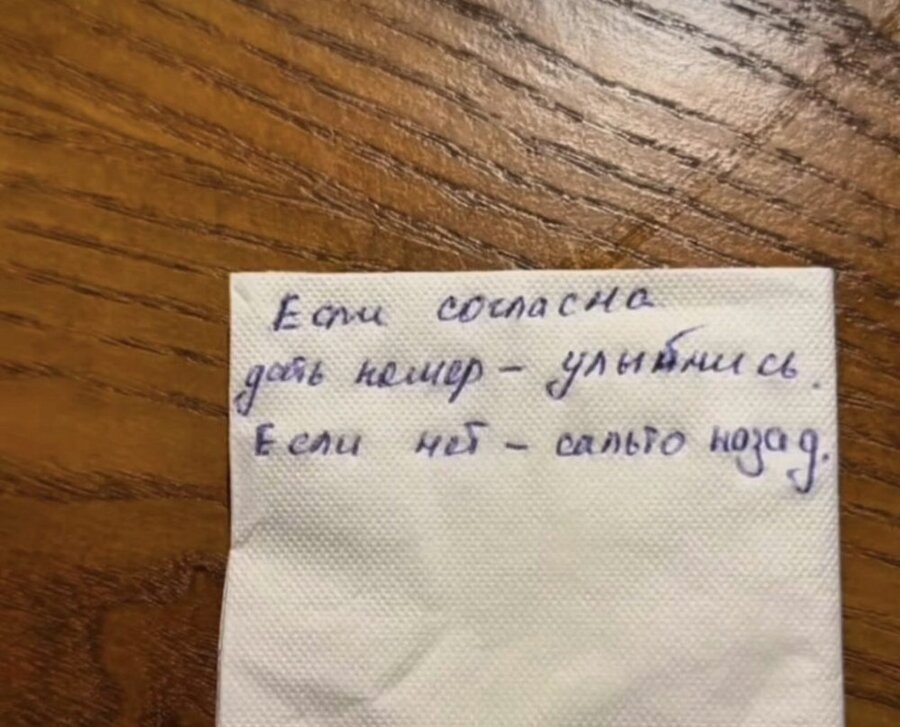 Если согласна
дать номер - улыбнись.
Если нет - сальто назад.